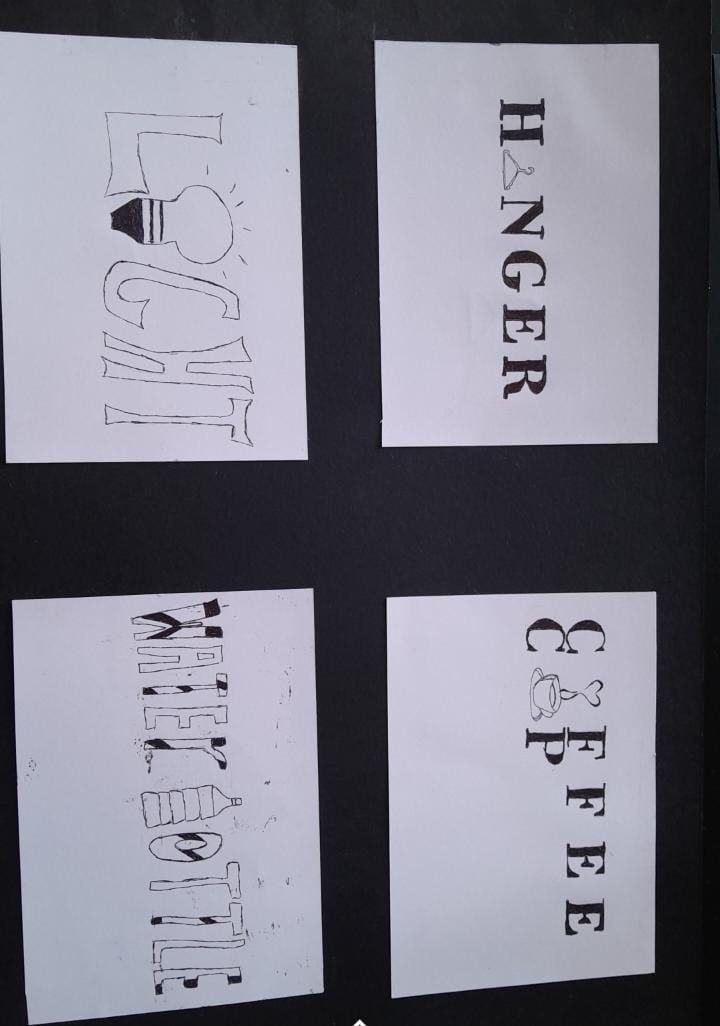 H NGER
C FFEE
C P
L CHT
WATER  OTTLE